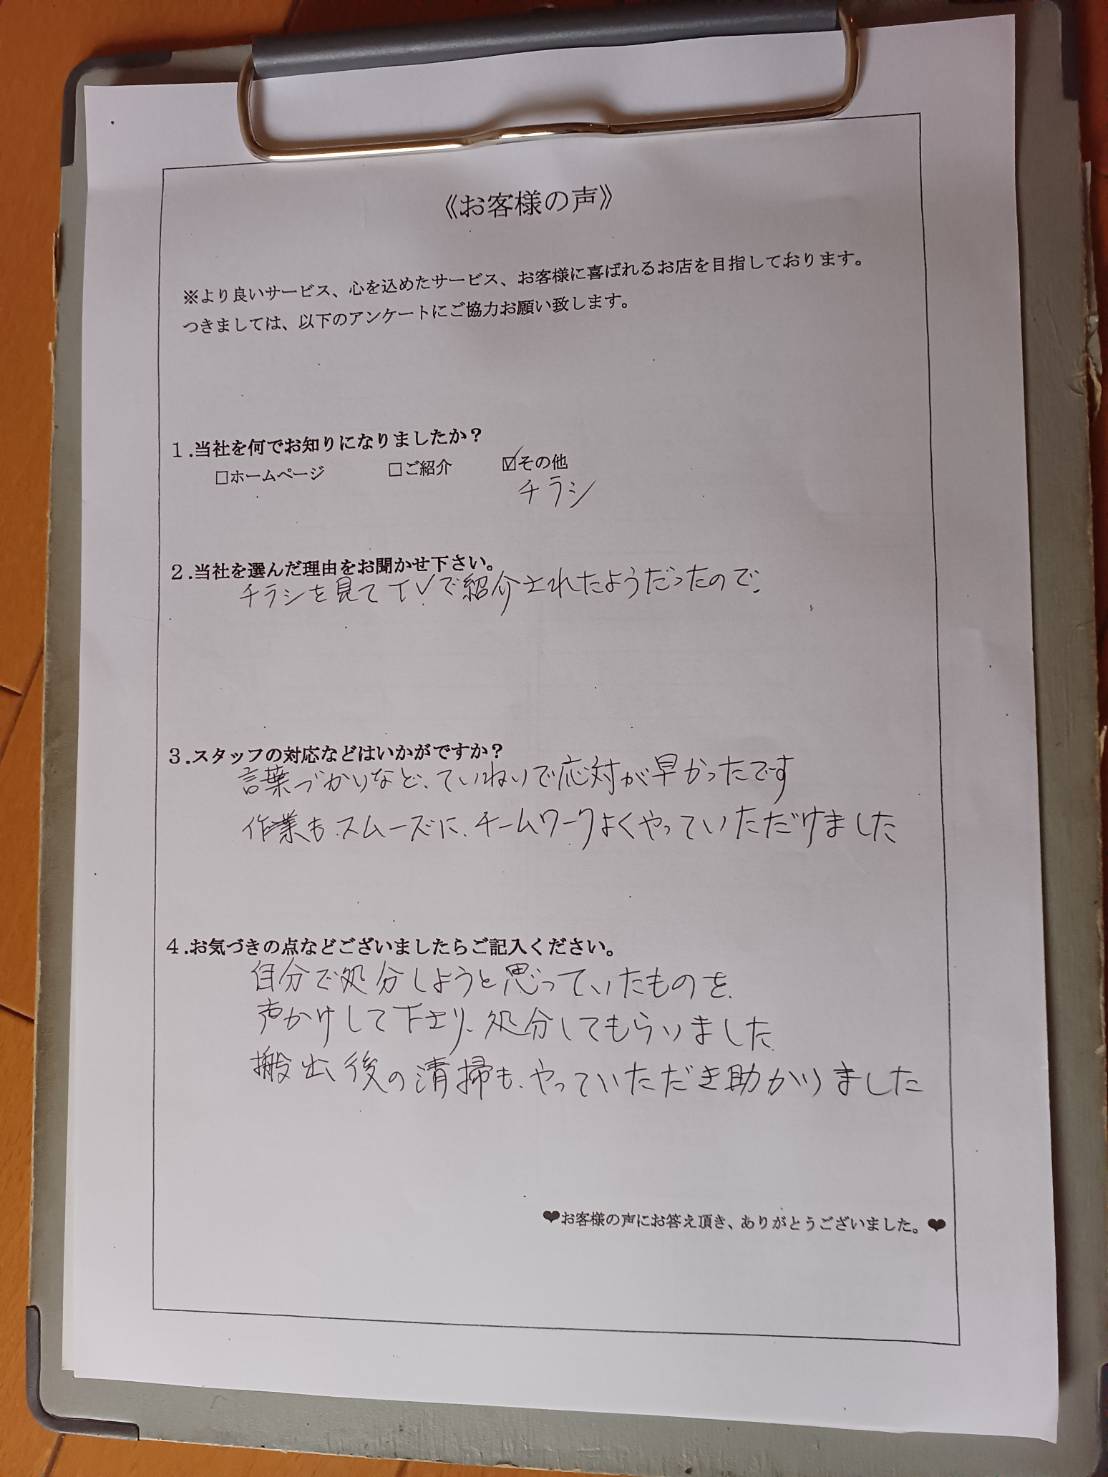 《お客様の声》
※より良いサービス、心を込めたサービス、お客様に喜ばれるお店を目指しております。
つきましては、以下のアンケートにご協力お願い致します。
１.当社を何でお知りになりましたか？
□ホームページ　□ご紹介　☑その他
チラシ
２.当社を選んだ理由をお聞かせ下さい。
チラシを見てTVで紹介されたようだったので、
３.スタッフの対応などはいかがですか？
言葉づかいなど、ていねいで応対が早かったです
作業も、スムーズに、チームワークよくやっていただけました
４.お気づきの点などございましたらご記入ください。
自分で処分しようと思っていたものを、
声かけして下さり、処分してもらいました
搬出後の清掃も、やっていただき助かりました
❤お客様の声にお答え頂き、ありがとうございました。❤